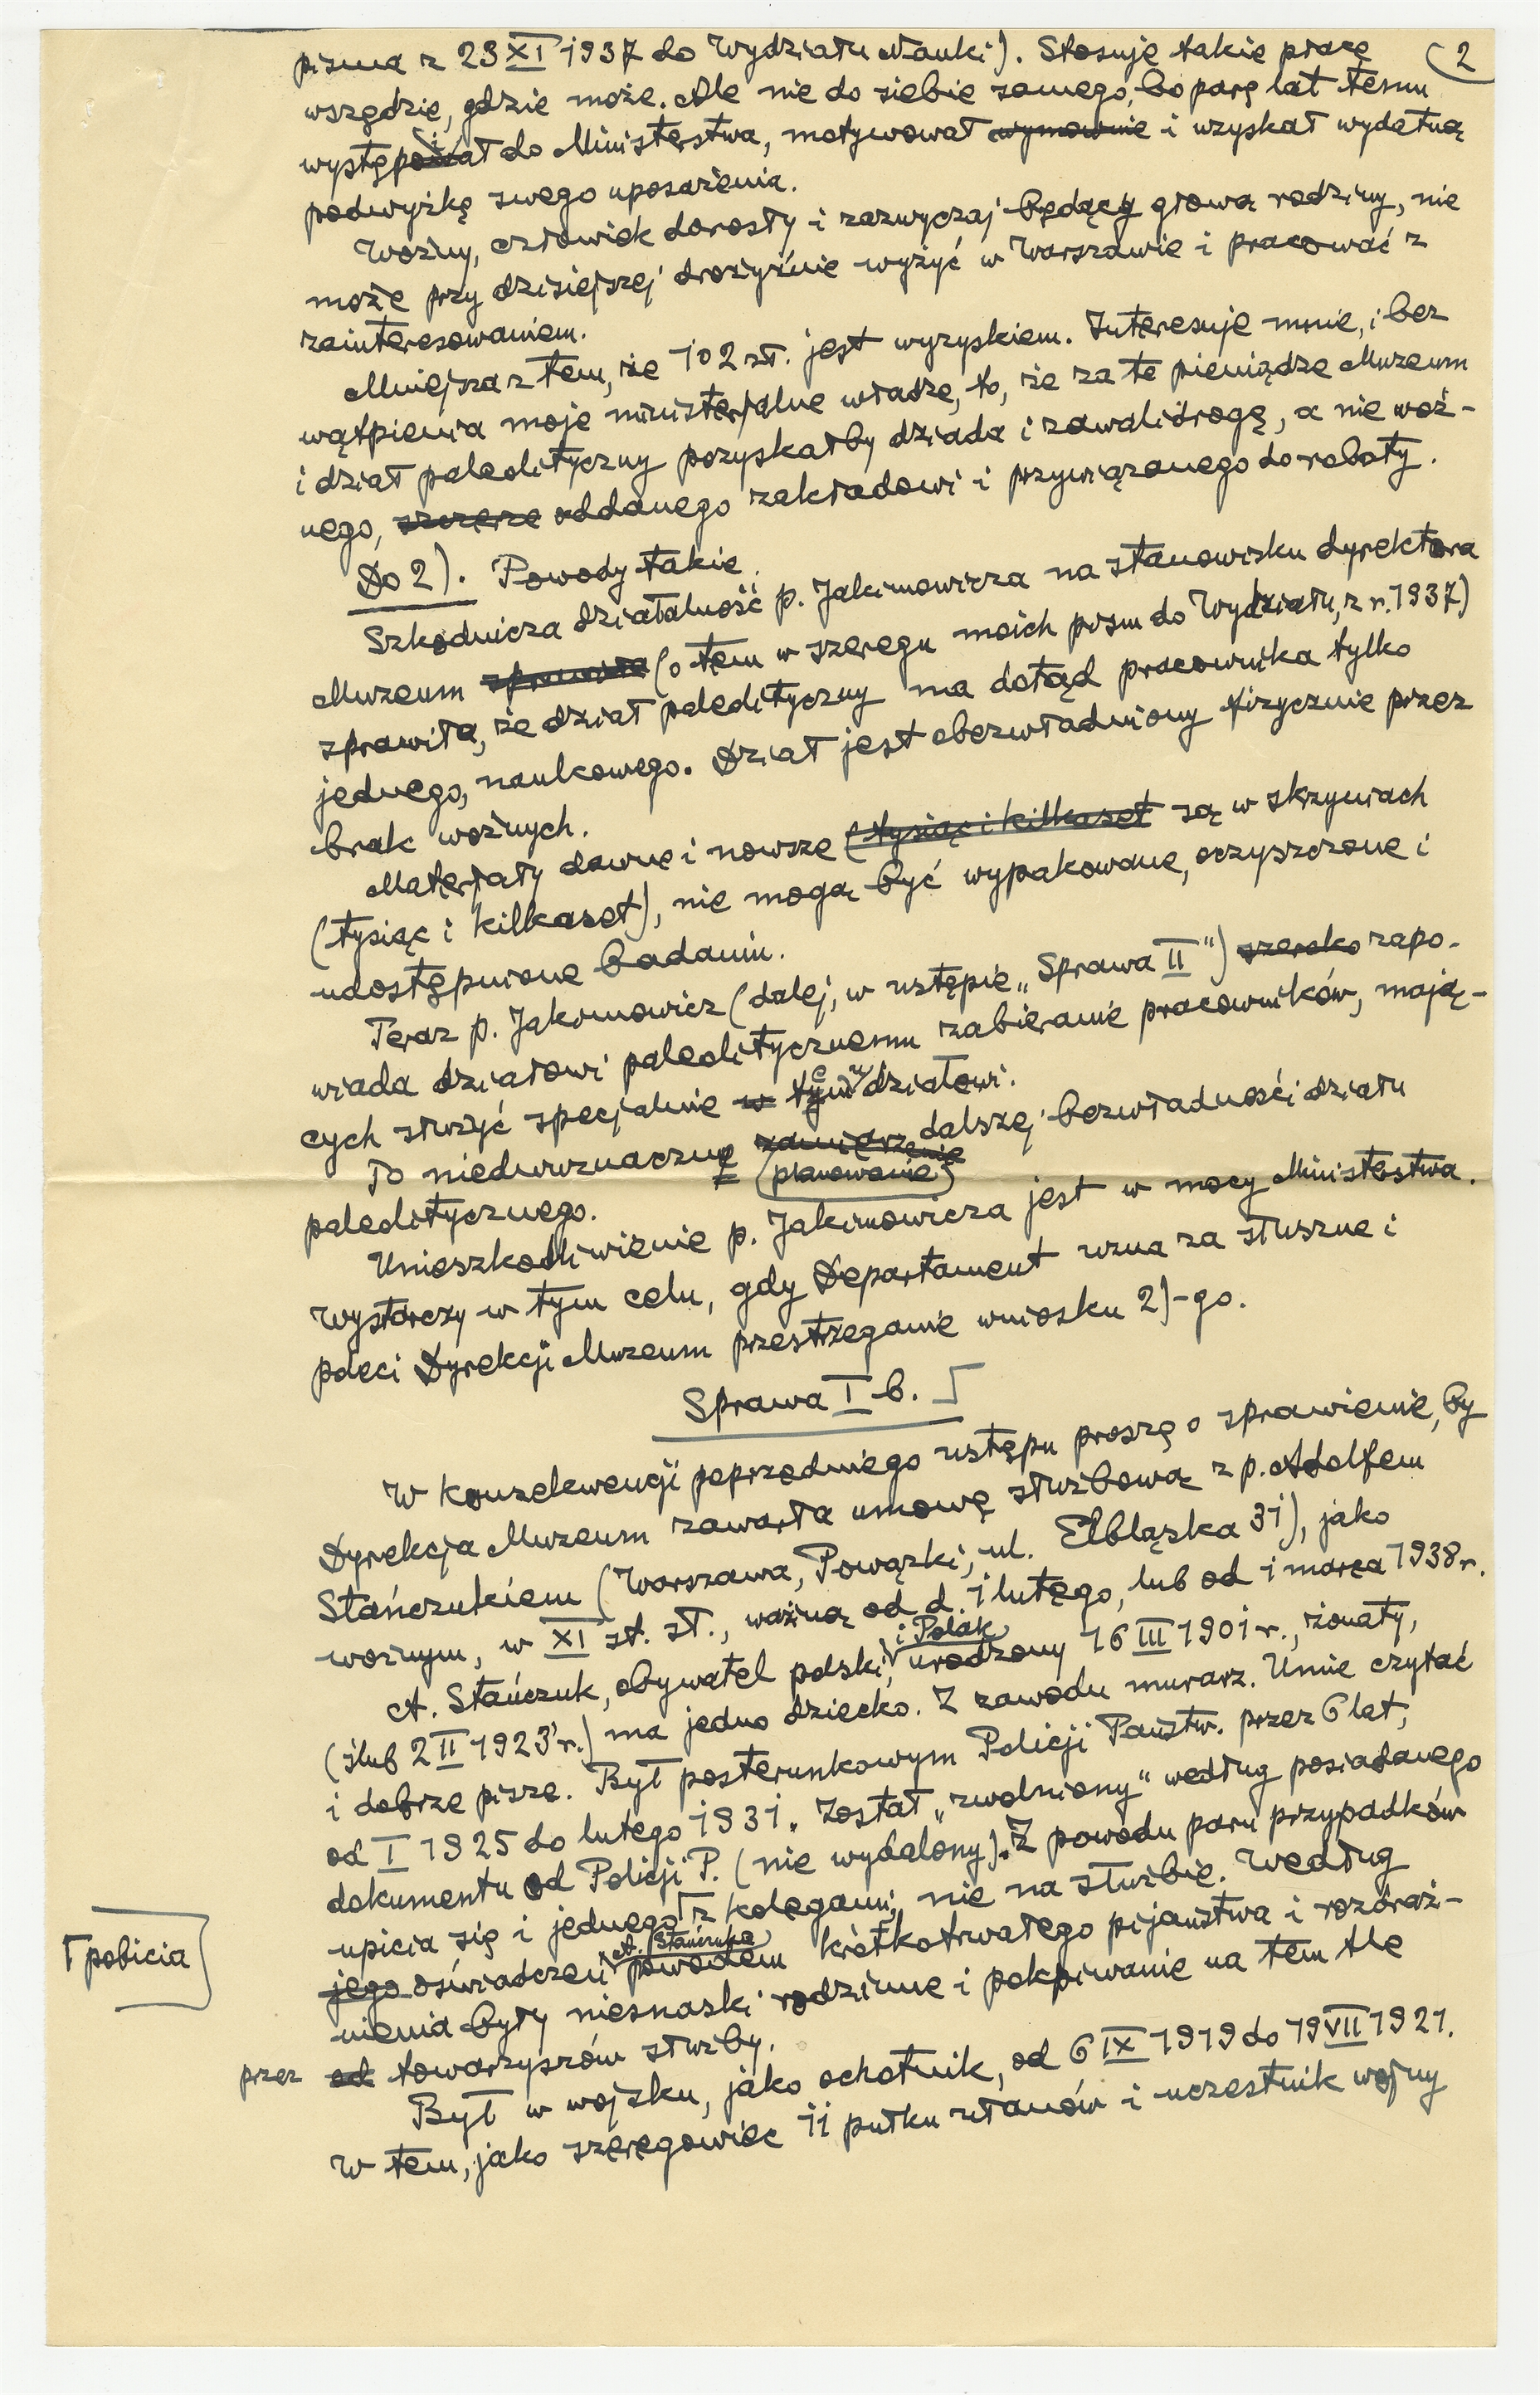 2
pisma z 23 XI 1937 do Wydziału Nauki). Stosuje takie płace
wszędzie, gdzie może. Ale nie do siebie samego, bo parę lat temu
wystąpił do Ministerstwa, motywował wymownie i uzyskał wydatną
podwyżkę swego uposażenia.
Woźny, człowiek dorosły i zazwyczaj będący głową rodziny, nie
może przy dzisiejszej drożyźnie wyżyć w Warszawie i pracować z
zainteresowaniem.
Mniejsza z tem, że 102 zł. jest wyzyskiem. Interesuje mnie, i bez
wątpienia moje ministerjalne władze, to, że za te pieniądze Muzeum
i dział paleolityczny pozyskałby dziada i zawalidrogę, a nie woź-
nego, szczerze oddanego zakładowi i przywiązanego do roboty.
Do 2). Powody takie.
Szkodnicza działalność p. Jakimowicza na stanowisku dyrektora
Muzeum sprawiła (o tem w szeregu moich pism do Wydziału, z r. 1937)
sprawiła, że dział paleolityczny ma dotąd pracownika tylko
jednego, naukowego. Dział jest obezwładniony fizycznie przez
brak woźnych.
Materjały dawne i nowsze (tysiąc i kilkaset są w skrzyniach
(tysiąc i kilkaset), nie mogą być wypakowane, oczyszczone i
udostępnione badaniu.
Teraz p. Jakimowicz (dalej, w ustępie „Sprawa II") szeroko zapo-
wiada działowi paleolitycznemu zabieranie pracowników, mają-
cych służyć specjalnie w temu działowi.
To niedwuznaczne zamierzenie (planowanie) dalszej bezwładności działu
paleolitycznego.
Unieszkodliwienie p. Jakimowicza jest w mocy Ministerstwa.
Wystarczy w tym celu, gdy Departament uzna za słuszne i
poleci Dyrekcji Muzeum przestrzeganie wniosku 2)-go.
Sprawa I b.
W konsekwencji poprzedniego ustępu proszę o sprawienie, by
Dyrekcja Muzeum zawarła umowę służbową z p. Adolfem
Stańczukiem (Warszawa, Powązki, ul. Elbląska 31), jako
woźnym, w XI st. sł., ważną od d. 1 lutego, lub od 1 marca 1938 r.
A. Stańczuk, obywatel polski i Polak, urodzony 16 III 1901 r., żonaty,
(ślub 2 II 1923 r.) ma jedno dziecko. Z zawodu murarz. Umie czytać
i dobrze pisze. Był posterunkowym Policji Państw. przez 6 lat,
od I 1925 do lutego 1931. Został „zwolniony" według posiadanego
dokumentu od Policji P. (nie wydalony). Z powodu paru przypadków
upicia się i jednego z kolegami, nie na służbie. Według
pobicia
jego oświadczeń A. Stańczuka powodem krótkotrwałego pijaństwa i rozdraż-
nienia były niesnaski rodzinne i pokpiwanie na tem tle
przez od towarzyszów służby.
Był w wojsku, jako ochotnik, od 6 IX 1919 do 19 VII 1921.
W tem, jako szeregowiec 11 pułku ułanów i uczestnik wojny